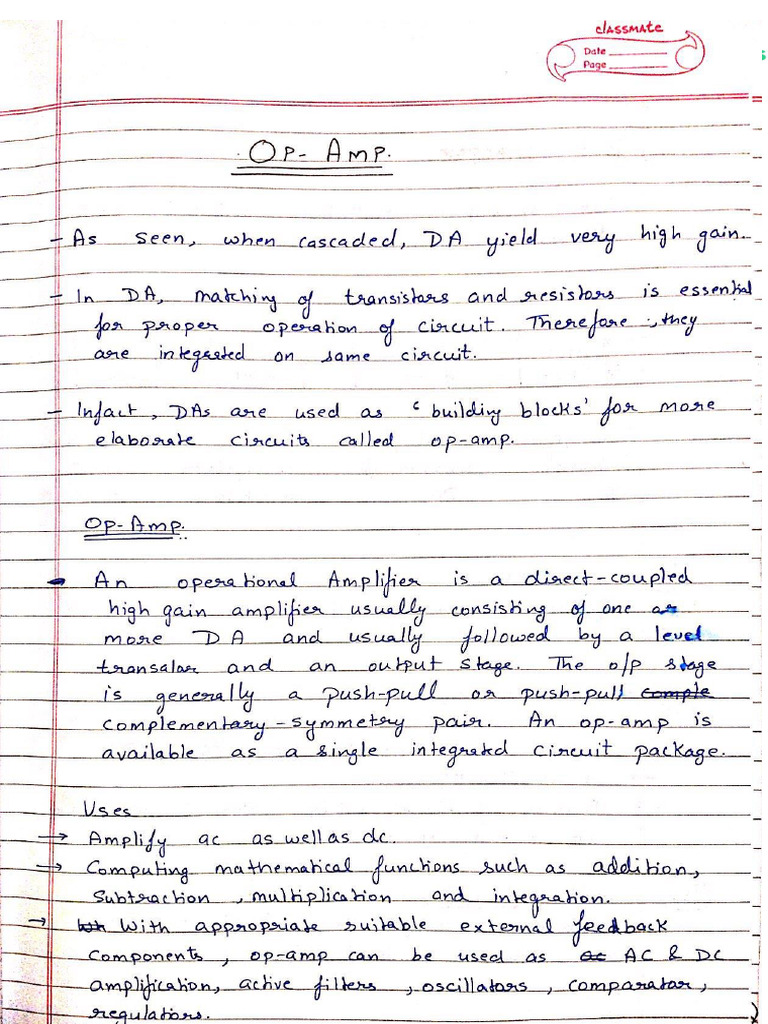 classmate
Date
Page
Op-Amp.
- As seen, when cascaded, DA yield very high gain.
- In DA, matching of transistors and resistors is essential
for proper operation of circuit. Therefore, they
are integrated on same circuit.
- Infact, DAs are used as 'building blocks' for more
elaborate circuits called op-amp.
Op-Amp.
- An operational Amplifier is a direct-coupled
high gain amplifier usually consisting of one or
more DA and usually followed by a level
transalar and an output stage. The o/p stage
is generally a push-pull or push-pull comple
complementary-symmetry pair. An op-amp is
available as a single integrated circuit package.
Uses
→ Amplify ac as well as dc.
→ Computing mathematical functions such as addition,
subtraction, multiplication and integration.
→ With appropriate suitable external feedback
components, op-amp can be used as ac AC & DC
amplification, active filters, oscillators, comparator,
regulators.